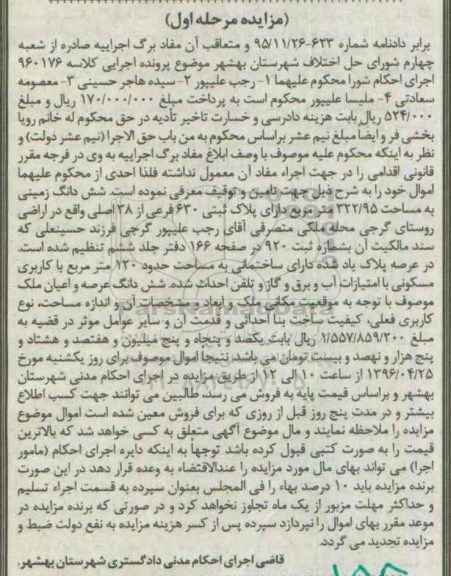 (مزایده مرحله اول)
برابر دادنامه شماره ۶۲۳-۹۵/۱۱/۲۶ و متعاقب آن مفاد برگ اجراییه صادره از شعبه
چهارم شورای حل اختلاف شهرستان بهشهر موضوع پرونده اجرایی کلاسه ۹۶۰۱۷۶
اجرای احکام شورا محکوم علیهما ۱- رجب علیپور ۲- سیده هاجر حسینی ۳- معصومه
سعادتی ۴- ملیسا علیپور محکوم است به پرداخت مبلغ ۱۷۰/۰۰۰/۰۰۰ ریال و مبلغ
۵۲۴/۰۰۰ ریال بابت هزینه دادرسی و خسارت تاخیر تأدیه در حق محکوم له خانم رویا
بخشی فر و ایضا مبلغ نیم عشر براساس محکوم به من باب حق الاجرا (نیم عشر دولت) و
نظر به اینکه محکوم علیه موصوف با وصف ابلاغ مفاد برگ اجراییه به وی در فرجه مقرر
قانونی اقدامی را در جهت اجراء مفاد آن معمول نداشته فلذا احدی از محکوم علیهما
اموال خود را به شرح ذیل جهت تامین و توقیف معرفی نموده است. شش دانگ زمینی
به مساحت ۳۲۲/۹۵ متر مربع دارای پلاک ثبتی ۶۳۰ فرعی از ۳۸ اصلی واقع در اراضی
روستای گرجی محله ملکی متصرفی آقای رجب علیپور گرجی فرزند حسینعلی که
سند مالکیت آن بشماره ثبت ۹۲۰ در صفحه ۱۶۶ دفتر جلد ششم تنظیم شده است.
در عرصه پلاک یاد شده دارای ساختمانی به مساحت حدود ۱۲۰ متر مربع با کاربری
مسکونی با امتیازات آب و برق و گاز و تلفن احداث شده. شش دانگ عرصه و اعیان ملک
موصوف با توجه به موقعیت مکانی ملک و ابعاد و مشخصات آن و اندازه مساحت، نوع
کاربری فعلی، کیفیت ساخت بنا احداثی و قدمت آن و سایر عوامل موثر در قضیه به
مبلغ ۱/۵۵۷/۸۵۹/۲۰۰ ریال بابت یکصد و پنجاه و پنج میلیون و هفتصد و هشتاد و
پنج هزار و نهصد و بیست تومان می باشد. نتیجا اموال موصوف برای روز یکشنبه مورخ
۱۳۹۶/۰۴/۲۵ از ساعت ۱۰ الی ۱۲ از طریق مزایده در اجرای احکام مدنی شهرستان
بهشهر و براساس قیمت پایه به فروش می رسد. طالبین می توانند جهت کسب اطلاع
بیشتر و در مدت پنج روز قبل از روزی که برای فروش معین شده است اموال موضوع
مزایده را ملاحظه نمایند و مال موضوع آگهی متعلق به کسی خواهد شد که بالاترین
قیمت را به صورت کتبی قبول کرده باشد توجهاً به اینکه دایره اجرای احکام (مامور
اجرا) می تواند بهای مال مورد مزایده را عندالاقتضاء به وعده قرار دهد در این صورت
برنده مزایده باید ۱۰ درصد بهاء را فی المجلس بعنوان سپرده به قسمت اجراء تسلیم
و حداکثر مهلت مزبور از یک ماه تجاوز نخواهد کرد و در صورتی که برنده مزایده در
موعد مقرر بهای اموال را نپردازد سپرده پس از کسر هزینه مزایده به نفع دولت ضبط و
مزایده تجدید می گردد.
قاضی اجرای احکام مدنی دادگستری شهرستان بهشهر.